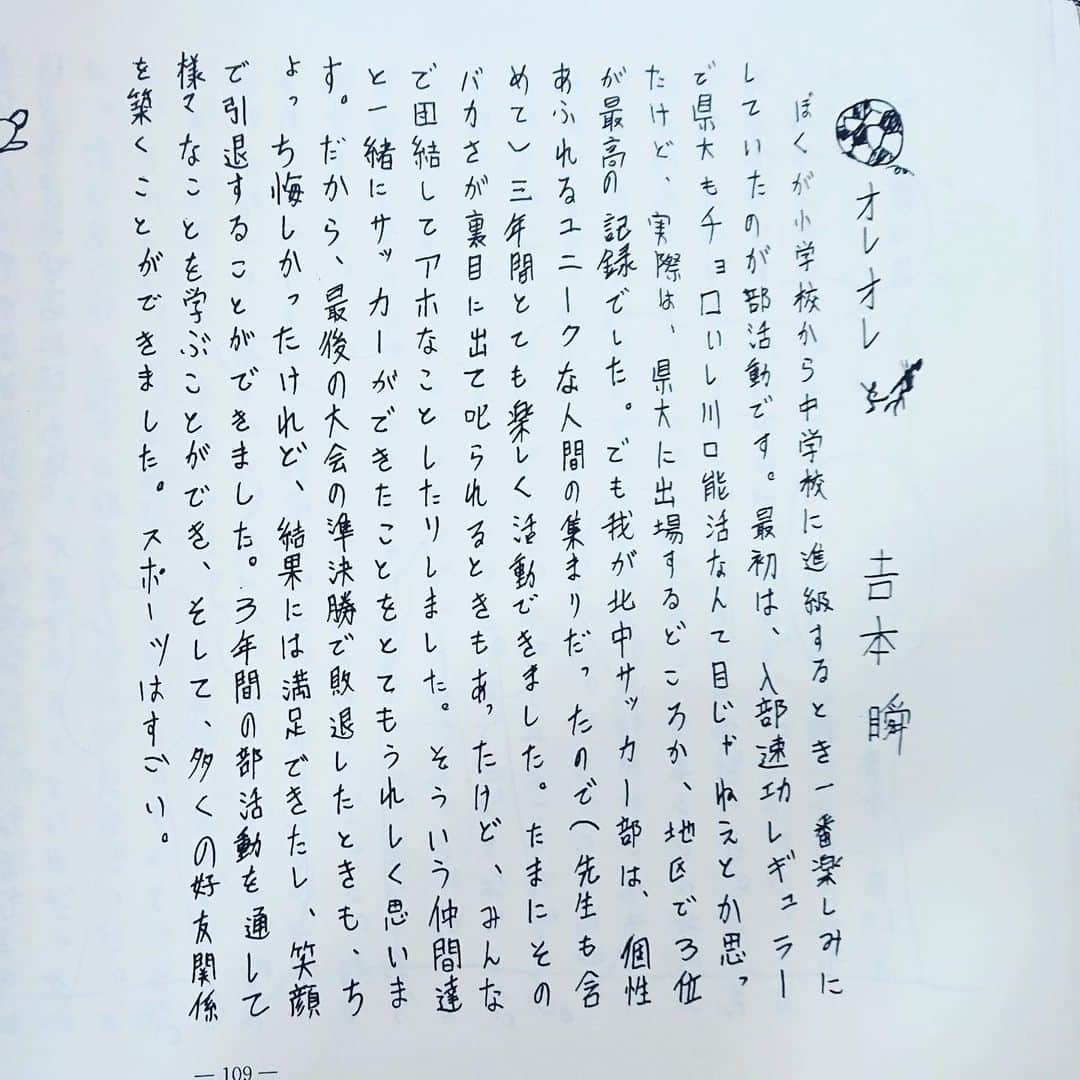 オレオレ 吉本 瞬
ぼくが小学校から中学校に進級するとき一番楽しみに
していたのが部活動です。最初は、入部速功レギュラー
で県大もチョロいし川口能活なんて目じゃねえとか思っ
たけど、実際は、県大に出場するどころか、地区で3位
が最高の記録でした。でも我が北中サッカー部は、個性
あふれるユニークな人間の集まりだったので(先生も含
めて)三年間とても楽しく活動できました。たまにその
バカさが裏目に出て叱られるときもあったけど、みんな
で団結してアホなことしたりしました。そういう仲間達
と一緒にサッカーができたことをとてもうれしく思いま
す。だから、最後の大会の準決勝で敗退したときも、ち
ょっち悔しかったけれど、結果には満足できたし、笑顔
で引退することができました。3年間の部活動を通して
様々なことを学ぶことができ、そして、多くの好友関係
を築くことができました。スポーツはすごい。
— 109 —